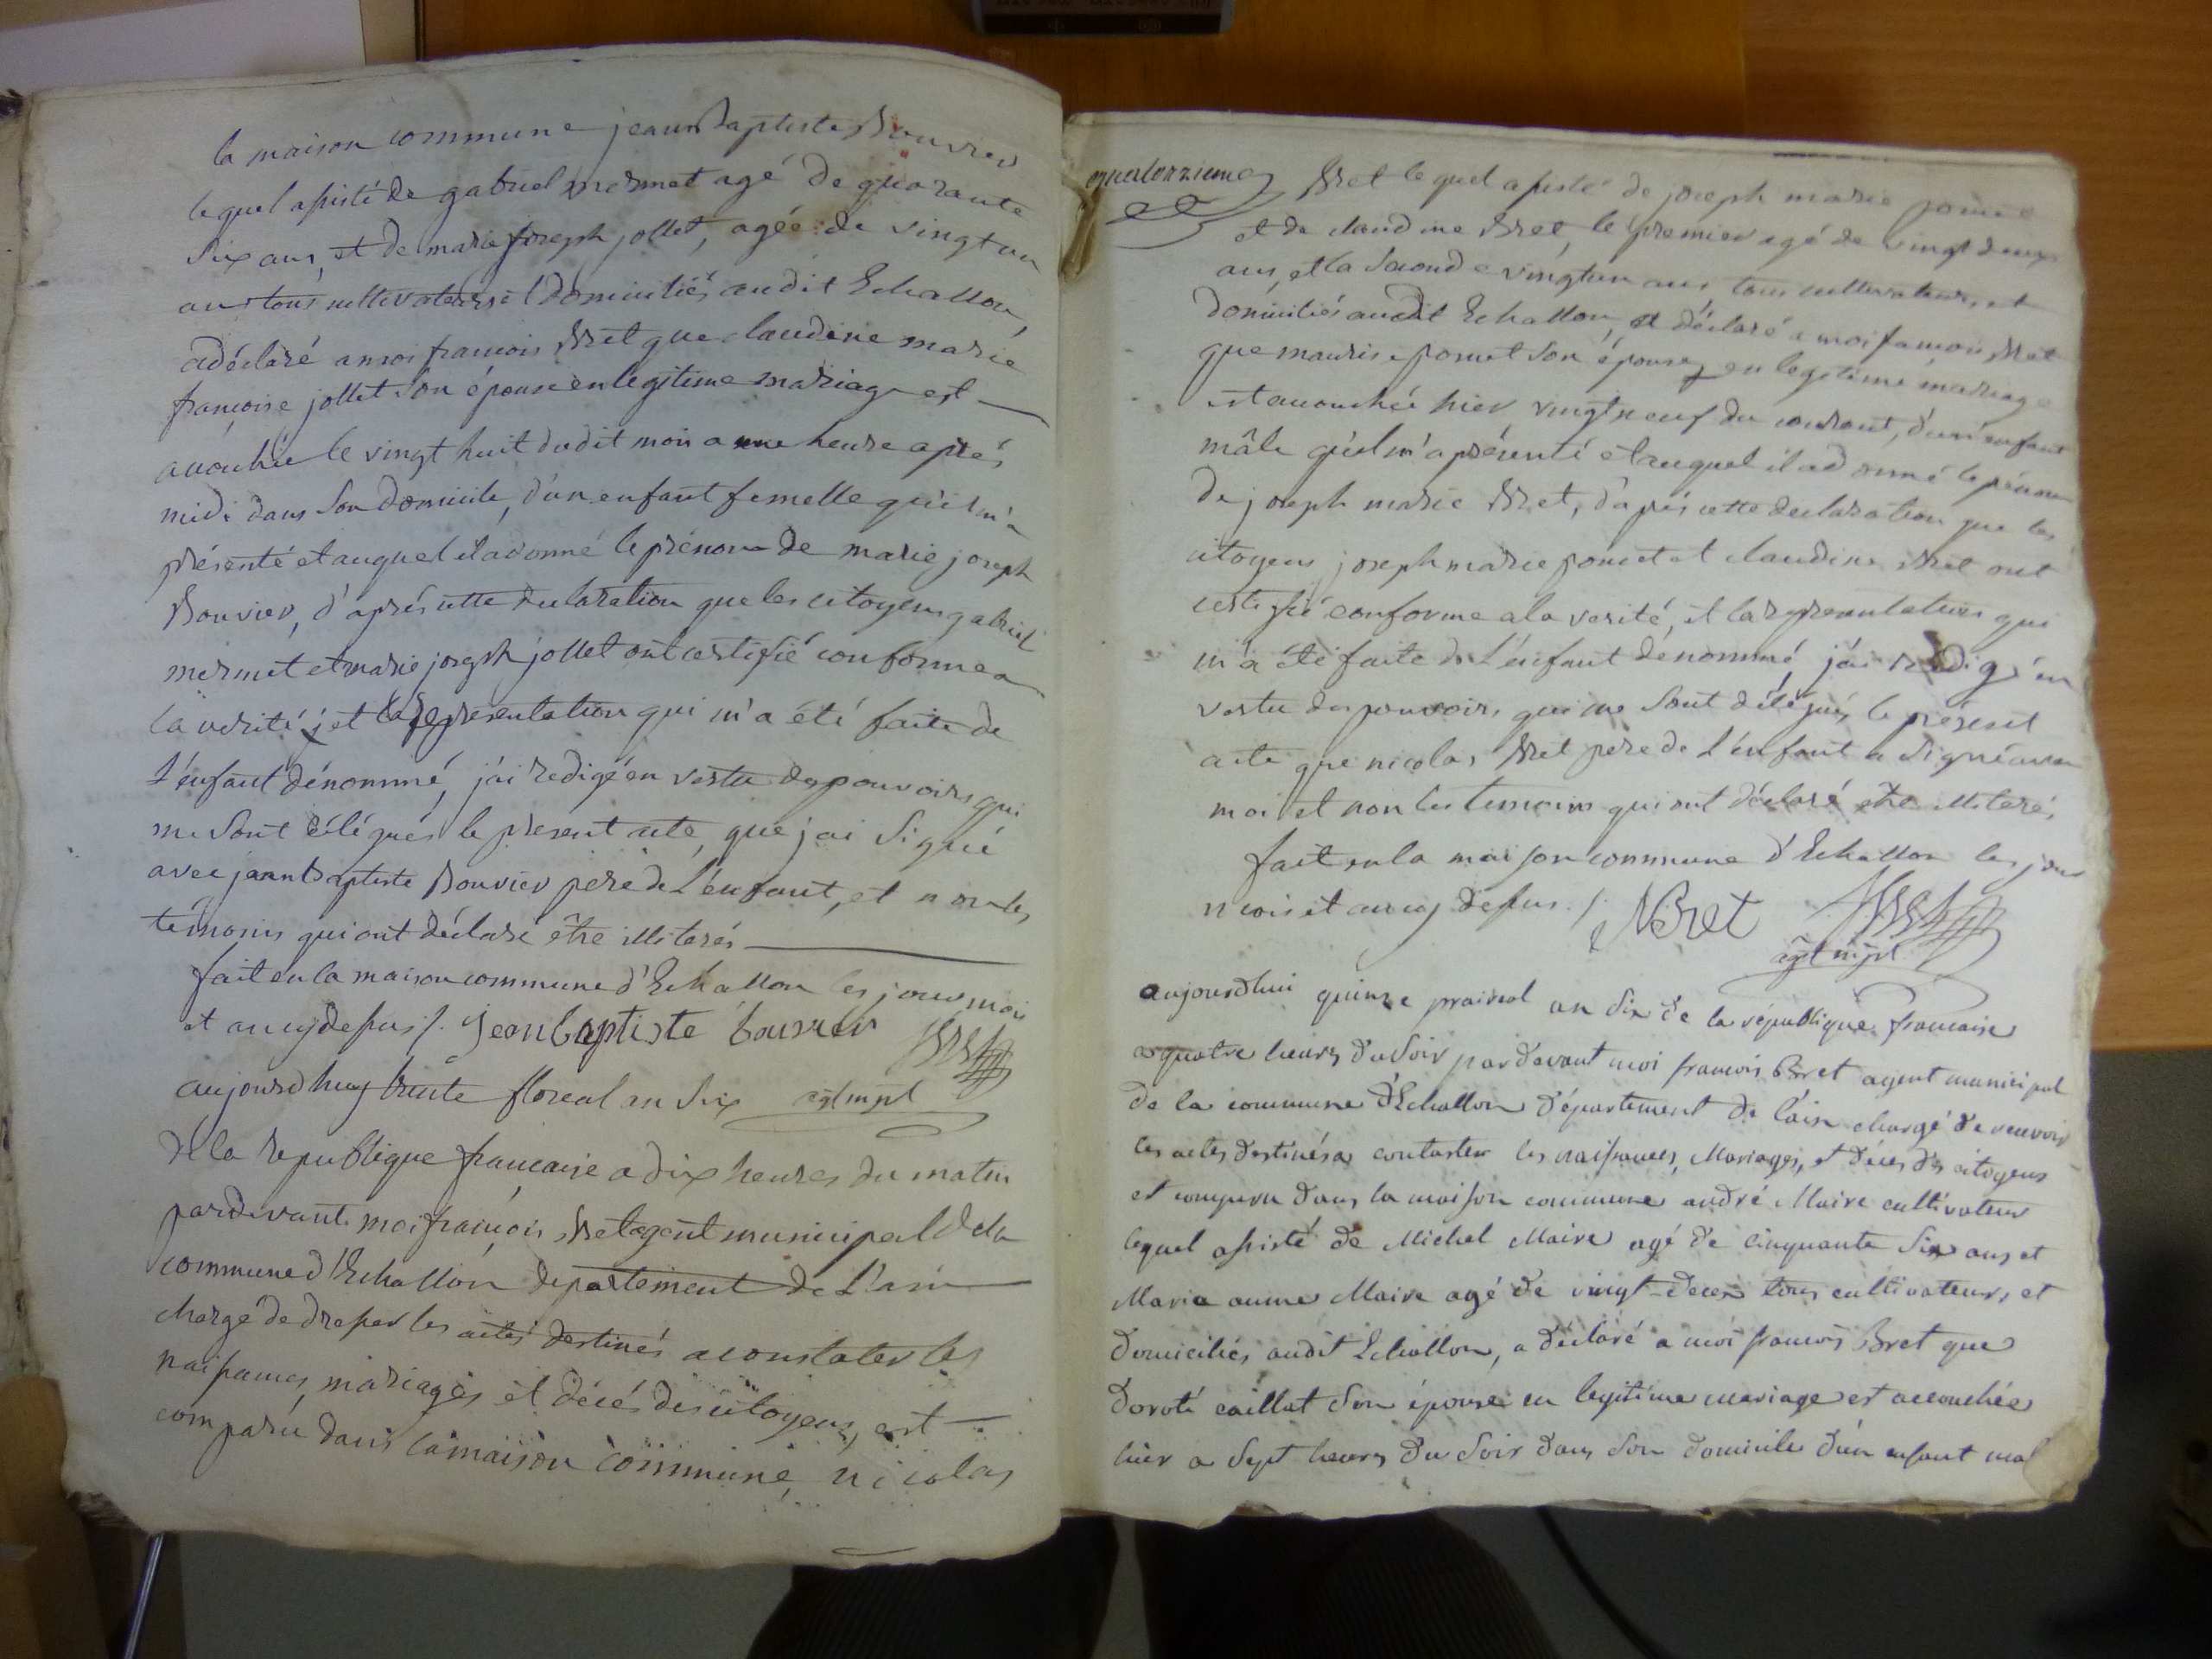 la maison commune jean Baptiste Bouvier
lequel assisté de gabriel mermet agé de quarante
six ans, et de marie joseph jollet, agée de vingt un
ans tous cultivateurs et domiciliés audit Echallon,
a déclaré a moi francois Bret que claudine marie
francoise jollet son épouse en legitime mariage est
accouchée le vingt huit dudit mois a une heure aprés
midi dans son domicile, d'un enfant femelle qu'il m'a
présenté et auquel il a donné le prénom de marie joseph
Bouvier, d'aprés cette declaration que les citoyens gabriel
mermet et marie joseph jollet ont certifié conforme a
la verité, et la representation qui m'a été faite de
l'énfant dénommé, j'ai redigé en vertu des pouvoirs qui
me sont délégués le present acte, que j'ai signé
avec jean Baptiste Bouvier pere de l'énfant, et non les
témoins qui ont déclaré être illiterés
fait en la maison commune d'Echallon les jour mois
et an cy dessus /. Jean baptiste bouvier
aujourdhuy trente floreal an six agt mpl
de la republique francaise a dix heures du matin
pardevant moi francois Bret agent municipal de la
commune d'Echallon departement de l'ain
chargé de dresser les actes destinés a constater les
naissances, mariages et décés des citoyens, est
comparu dans la maison commune, nicolas
quatorzieme
Bret lequel assisté de joseph marie poncet
et de claudine Bret, le premier agé de vingt deux
ans, et la seconde vingt un ans tous cultivateurs, et
domiciliés audit Echallon, a déclaré a moi francois Bret
que maurise poncet son épouse en legitime mariage
est accouchée hier vingt neuf du courant, d'un énfant
mâle qu'il m'a présenté et auquel il a donné le prénom
de joseph marie Bret, d'aprés cette declaration que les
citoyens joseph marie poncet et claudine Bret ont
certifié conforme a la verité, et la representation qui
m'a été faite de l'énfant dénommé, j'ai redigé en
vertu des pouvoirs qui me sont délégués le présent
acte que nicolas Bret pere de l'énfant a signé avec
moi et non les temoins qui ont déclaré être illiterés
fait en la maison commune d'Echallon les jour
mois et an cy dessus. /. NBret
agt mpl
aujourdhui quinze prairial an six de la république francaise
a quatre heures du soir pardevant moi francois Bret agent municipal
de la commune d'Echallon département de l'ain chargé de recevoir
les actes destinés a constater les naissances, Mariages, et décès des citoyens
est comparu dans la maison commune andré Maire cultivateur
lequel assisté de Michel Maire agé de cinquante six ans et
Marie anne Maire agé de vingt-deux tous cultivateurs et
domiciliés audit Echallon, a déclaré a moi francois Bret que
doroté caillat son épouse en legitime mariage est accouchée
hier a sept heures du soir dans son domicile d'un enfant mal